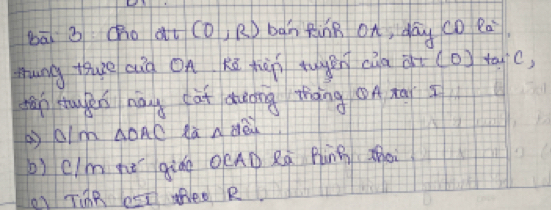 Bài 3 Cho đtr (O, R) bán kính OA, dây CD là
trung trực của OA kẻ tiếp tuyến của đtr (O) tại C,
tiếp tuyến này cắt đường thẳng OA tại I
a) C/m ΔOAC là Δ đều
b) C/m tứ giác OCAD là hình thoi
c) Tính theo R.